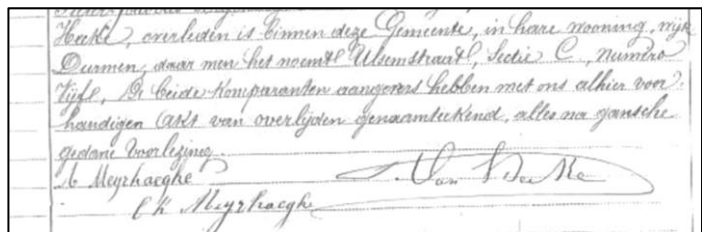 Hecke, overleden is binnen deze Gemeente, in hare wooning, wijk
Durmen, daar men het noemt Ulsemstraat, Sectie C, numero
Vijf. De beide Komparanten aangevers hebben met ons alhier voor
handigen Akt van overlijden genaamteekend, alles na gansche
gedane voorlezing.
A Meyrhaeghe Van Hecke
C K Meyrhaeghe